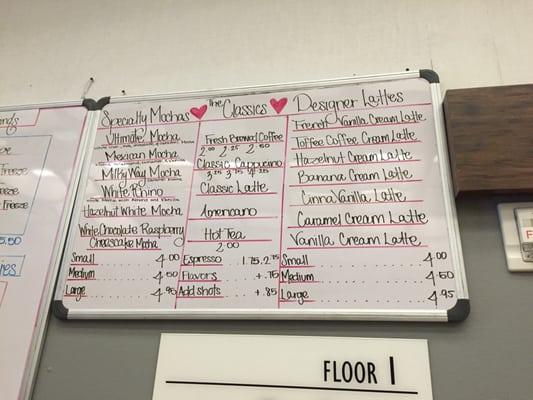 Specialty Mochas
Ultimate Mocha
Mexican Mocha
Milky Way Mocha
White Rhino
Hazelnut White Mocha
White Chocolate Raspberry
Cheesecake Mocha
Small 4.00
Medium 4.50
Large 4.95
The Classics
Fresh Brewed Coffee
2.00 2.25 2.50
Classic Cappucino
3.25 3.75 4.25
Classic Latte
Americano
Hot Tea
2.00
Espresso 1.75, 2.75
Flavors + .75
Add shots + .85
Designer Lattes
French Vanilla Cream Latte
Toffee Coffee Cream Latte
Hazelnut Cream Latte
Banana Cream Latte
Cinna Vanilla Latte
Caramel Cream Latte
Vanilla Cream Latte
Small 4.00
Medium 4.50
Large 4.95
FLOOR 1